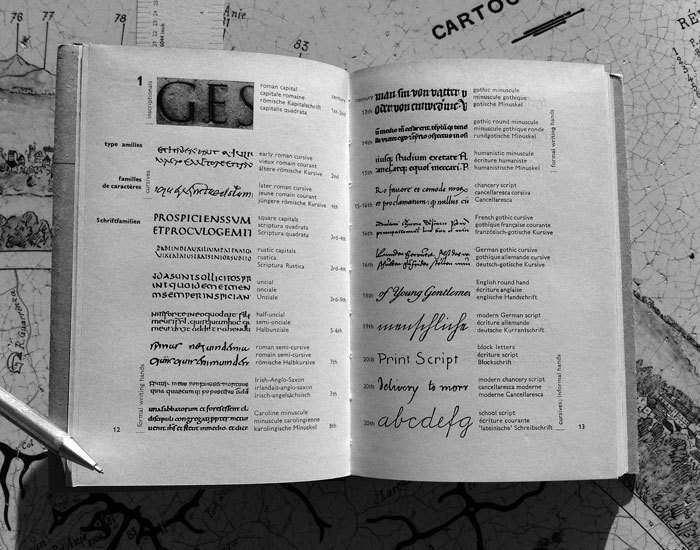 76 77 78
Anie
83
CARTOG
6044 inch
R. Guarpenza
Col
1
GES
inscriptionals
roman capital
capitale romaine
römische Kapitalschrift
capitalis quadrata
century
1st-2nd
type families
familles
de caractères
Schriftfamilien
cursives
early roman cursive
vieux romain courant
ältere römische Kursive
2nd
later roman cursive
jeune romain courant
jüngere römische Kursive
4th
PROSPICIENSSVM
ETPROCVLOGEMIT
square capitals
scriptura quadrata
Scriptura quadrata
3rd-4th
rustic capitals
rustica
Scriptura Rustica
3rd-4th
IDASUNTSOLLICITOSPP
INTQUOIDEMETMEN
MSEMPERINSPICIAN
uncial
onciale
Unziale
3rd-5th
half-uncial
semi-onciale
Halbunziale
5-6th
roman semi-cursive
romain semi-cursive
römische Halbkursive
7th
formal writing hands
Irish-Anglo-Saxon
irlandais-anglo-saxon
irisch-angelsächsisch
7th
una sabbatorum et fortessent di
discipuli congregati propter metum
Caroline minuscule
minuscule carolingienne
karolingische Minuskel
8th
12
century
13th
gothic minuscule
minuscule gothique
gotische Minuskel
gothic round minuscule
minuscule gothique ronde
rundgotische Minuskel
14th
formal writing hands
iusq; studium exetate A
15th
humanistic minuscule
écriture humaniste
humanistische Minuskel
Ro fuuere et comodo mox
et proclamatum
15-16th
chancery script
cancellaresca corsiva
Cancellaresca
16th
French gothic cursive
gothique française courante
französisch-gotische Kursive
16th
German gothic cursive
gothique allemande courante
deutsch-gotische Kursive
18th
of Young Gentlemen
English round hand
écriture anglaise
englische Handschrift
19th
menschliche
modern German script
écriture allemande
deutsche Kurrentschrift
20th
Print Script
block letters
écriture script
Blockschrift
20th
Delivery to morr
modern chancery script
cancellaresca moderne
moderne Cancellaresca
20th
abcdefg
school script
écriture courante
'lateinische' Schreibschrift
cursives: informal hands
13